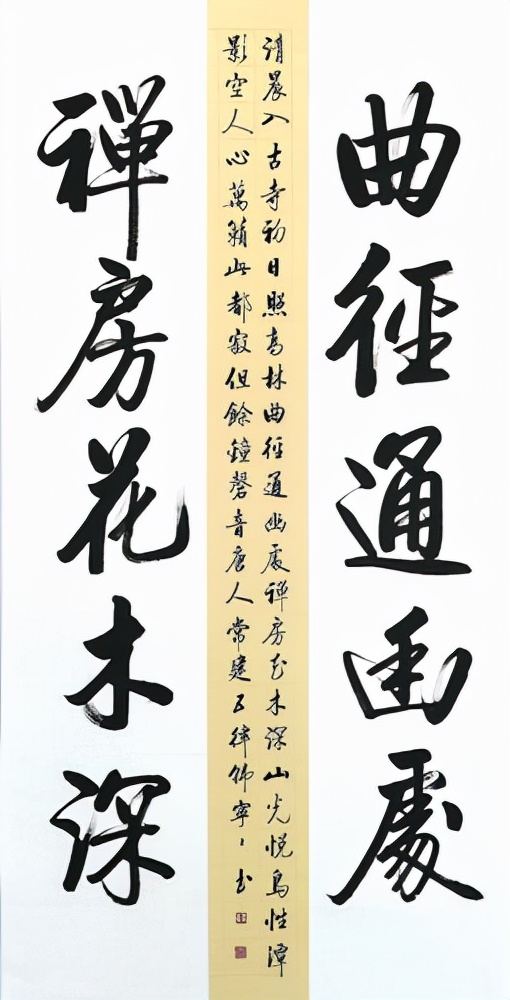 曲徑通幽處
清晨入古寺初日照高林曲徑通幽處禪房花木深山光悅鳥性潭
影空人心萬籟此都寂但餘鐘磬音唐人常建五律寧〻书
禪房花木深